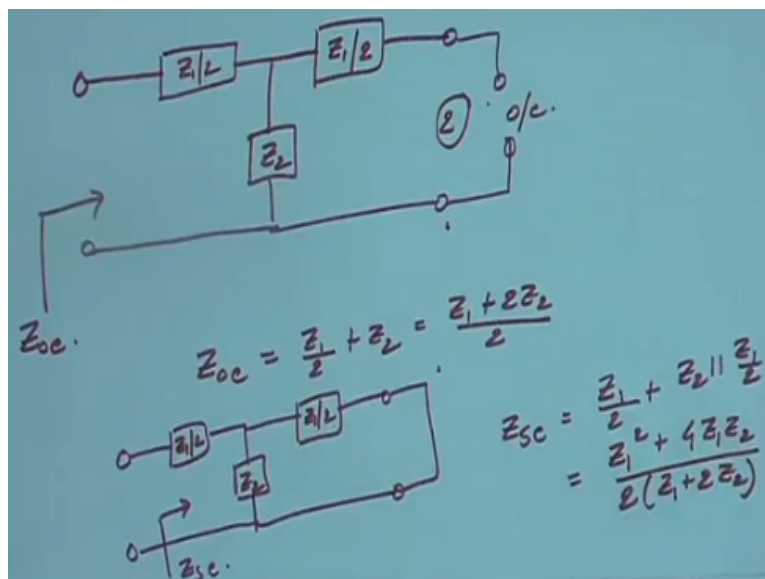 Z₁/2 Z₁/2
Z₂
2 o/c.
Zoc.
Zoc = Z₁/2 + Z₂ = (Z₁ + 2Z₂)/2
Z₁/2 Z₁/2
Z₂
Zsc.
Zsc = Z₁/2 + Z₂ || Z₁/2
= (Z₁² + 4Z₁Z₂)/(2(Z₁+2Z₂))